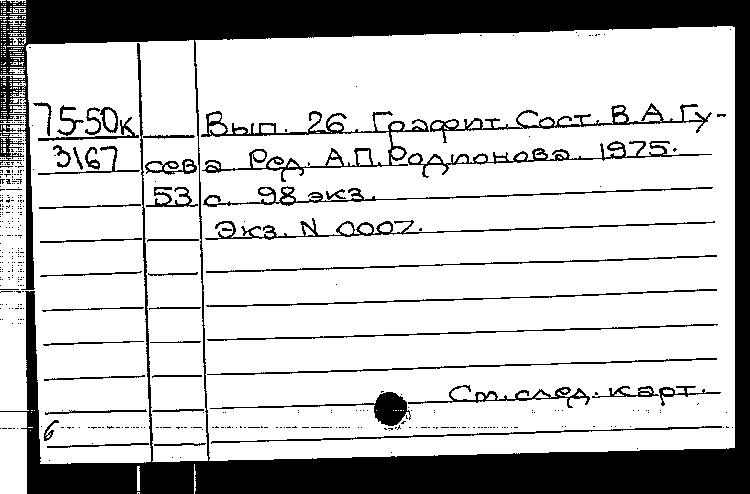 75-50к Вып. 26. Графит. Сост. В.А. Гу-
3167 сева Ред. А.П. Родионова. 1975.
53 с. 98 экз.
Экз. N 0007.
См. след. карт.
6